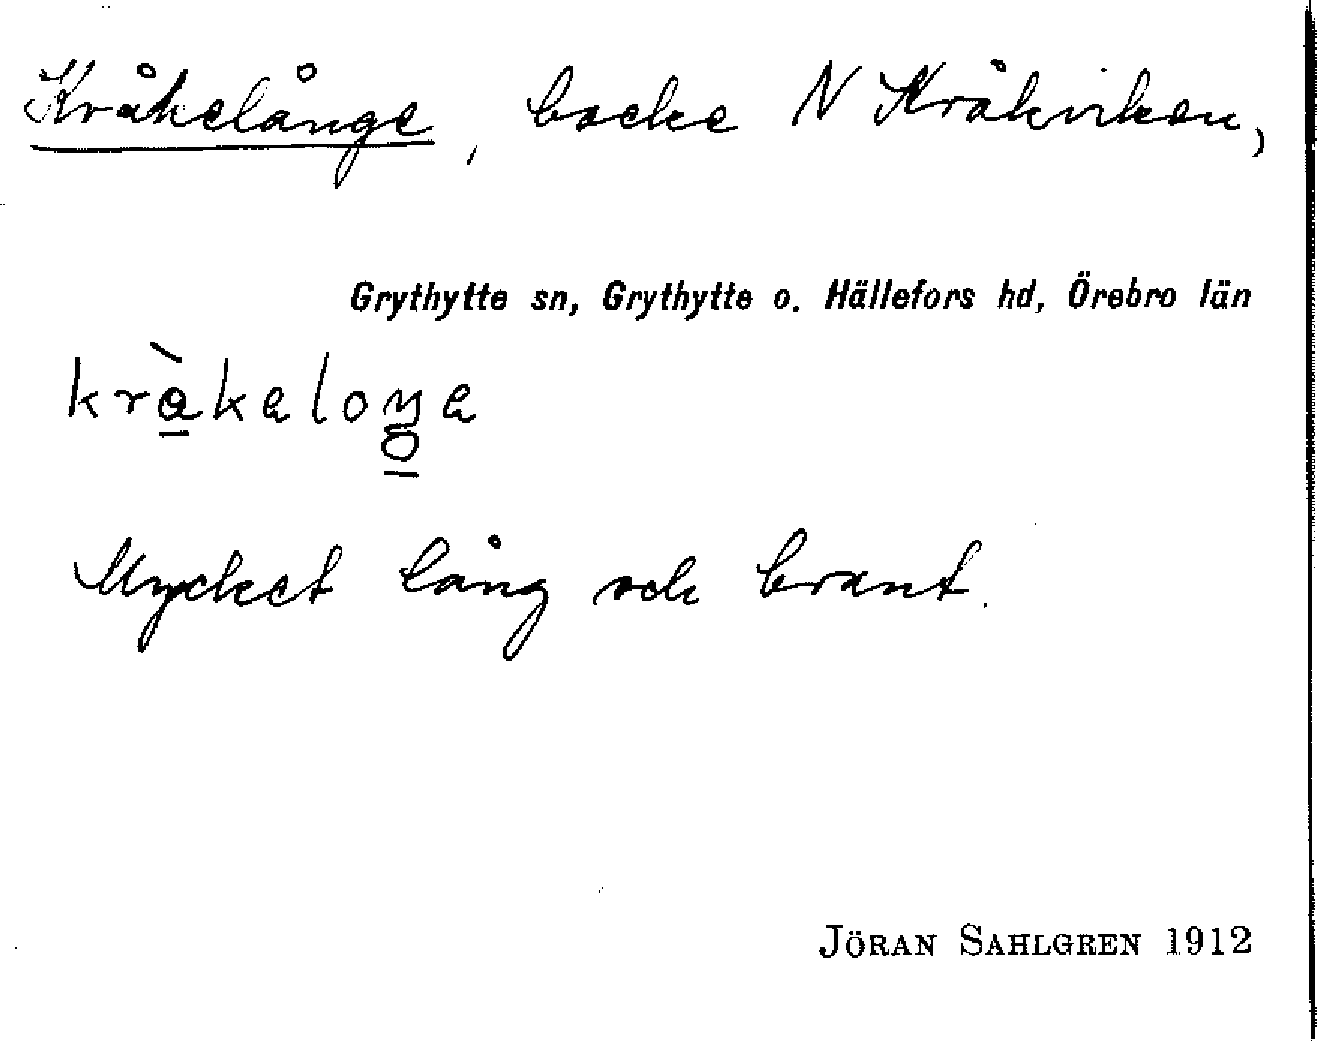 Kråkelånge, backe N Kråkviken,
Grythytte sn, Grythytte o. Hällefors hd, Örebro län
Mycket lång och brant.
JÖRAN SAHLGREN 1912